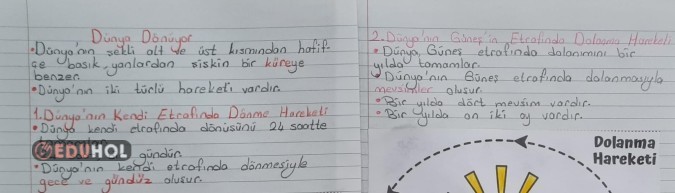 Dünya Dönüyor
• Dünya'nın şekli alt ve üst kısmından hafif-
çe basık, yanlardan şişkin bir küreye
benzer.
• Dünya'nın iki türlü hareketi vardır.
1. Dünya'nın Kendi Etrafında Dönme Hareketi
• Dünya kendi etrafında dönüşünü 24 saatte
EDUHOL
gündür.
• Dünya'nın kendi etrafında dönmesiyle
gece ve gündüz oluşur.
2. Dünya'nın Güneş'in Etrafında Dolanma Hareketi
• Dünya, Güneş etrafında dolanımını bir
yılda tamamlar.
Dünya'nın Güneş etrafında dolanmasıyla
mevsimler oluşur.
• Bir yılda dört mevsim vardır.
• Bir yılda on iki ay vardır.
Dolanma
Hareketi